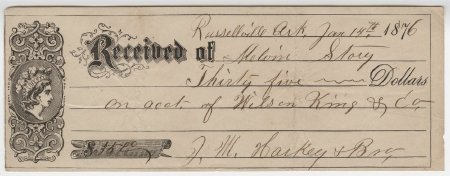 Russellville Ark Jan 14th 1876
Received of Melvin Story
Thirty five Dollars
on acct. of Wilson King & Co
$35.00 J. M. Harkey & Bro,